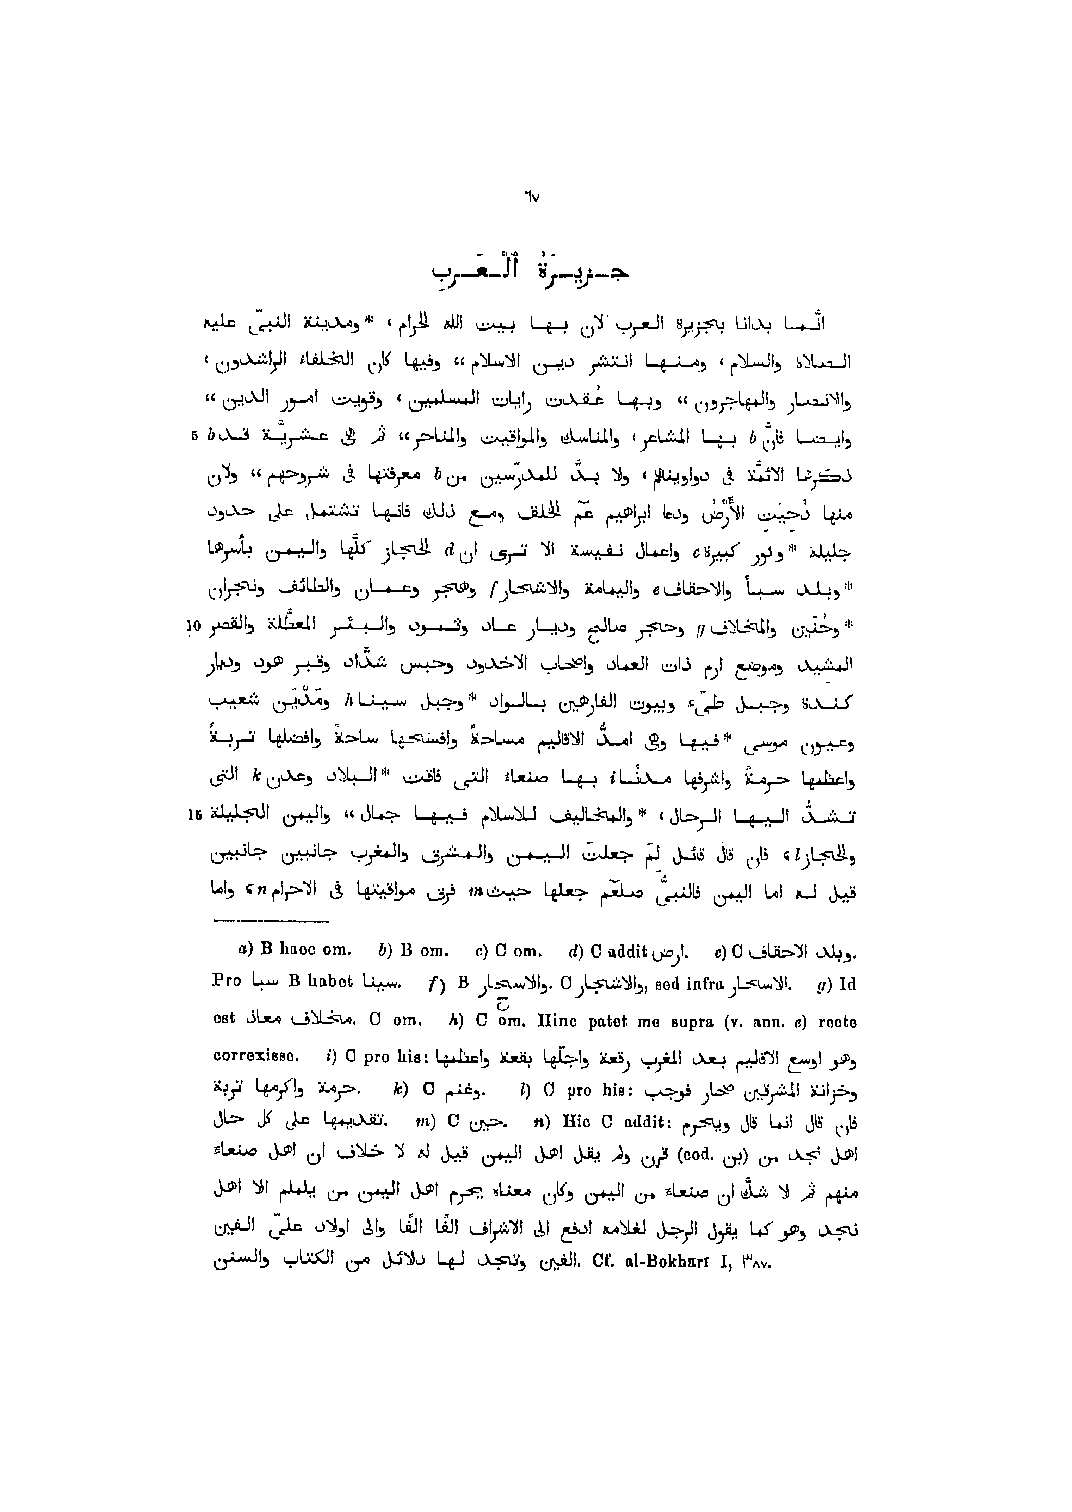 ٦٧
جزيرَةُ ٱلْعَرَبِ
انّما بدانا بجزيرة العرب لان بها بيت الله الحرام، *ومدينة النبىّ عليه
الصلاة والسلام، ومنها انتشر دين الاسلام“ وفيها كان الخلفاء الراشدون،
والانصار والمهاجرون“ وبها عُقدت رايات المسلمين، وقويت امور الدين“
وايضا فانّ b بها المشاعر، والمناسك والمواقيت والمناحر“ ثم هى عشريّة قد b 5
ذكرها الائمّة فى دواوينهم، ولا بدّ للمدرّسين من b معرفتها فى شروحهم“ ولان
منها دُحِيَت الأَرْضُ ودعا ابراهيم عَم الخلف ومع ذلك فانها تشتمل على حدود
جليلة *وكور كبيرة c واعمال نفيسة الا ترى ان d الحجاز كلَّها واليمن بأسرها
*وبلد سبأ والاحقاف e واليمامة والاشحار f وهجر وعمان والطائف ونجران
*وحُنَين والمخلاف g وحجر صالح وديار عاد وثمود والبئر المعطَّلة والقصر 10
المشيد وموضع ارم ذات العماد واصحاب الاخدود وحبس شدَّاد وقبر هود وديار
كندة وجبل طيّء وبيوت الفارهين بالواد *وجبل سينا h ومَدْيَن شعيب
وعيون موسى *فيها وهى امدُّ الاقاليم مساحةً وافسحها ساحةً وافضلها تربةً
واعظمها حرمةً واشرفها مدنًا i بها صنعاء التى فاقت *البلاد وعدن k التى
تشدُّ اليها الرحال، *والمخاليف للاسلام فيها جمال“ واليمن الجليلة 15
والحجاز l، فان قال قائل لِمَ جعلتَ اليمن والمشرق والمغرب جانبين جانبين
قيل له اما اليمن فالنبىُّ صلعَم جعلها حيث m فرق مواقيتها فى الاحرام n، واما
a) B haec om. b) B om. c) C om. d) C addit ارض. e) C وبلد الاحقاف.
Pro سبا B habet سينا. f) B والاسحار. C والاشجار, sed infra الاسحار. g) Id
est مخلاف معاذ. C om. h) C om. Hinc patet me supra (v. ann. e) recte
correxisse. i) C pro his: وهو اوسع الاقاليم بعد المغرب رقعة واجلّها بقعة واعظمها
حرمة واكرمها تربة. k) C وغنم. l) C pro his: وخزانة المشرقين صحار فوجب
تقديمها على كل حال. m) C حين. n) Hic C addit: فان قال انما قال ويحرم
اهل نجد من (cod. بن) قرن ولم يقل اهل اليمن قيل له لا خلاف ان اهل صنعاء
منهم ثم لا شكّ ان صنعاء من اليمن وكان معناه يحرم اهل اليمن من يلملم الا اهل
نجد وهو كما يقول الرجل لغلامه ادفع الى الاشراف الفًا الفًا والى اولاد علىّ الفين
الفين وتجد لها دلائل من الكتاب والسنن. Cf. al-Bokhârî I, ٣٨٧.